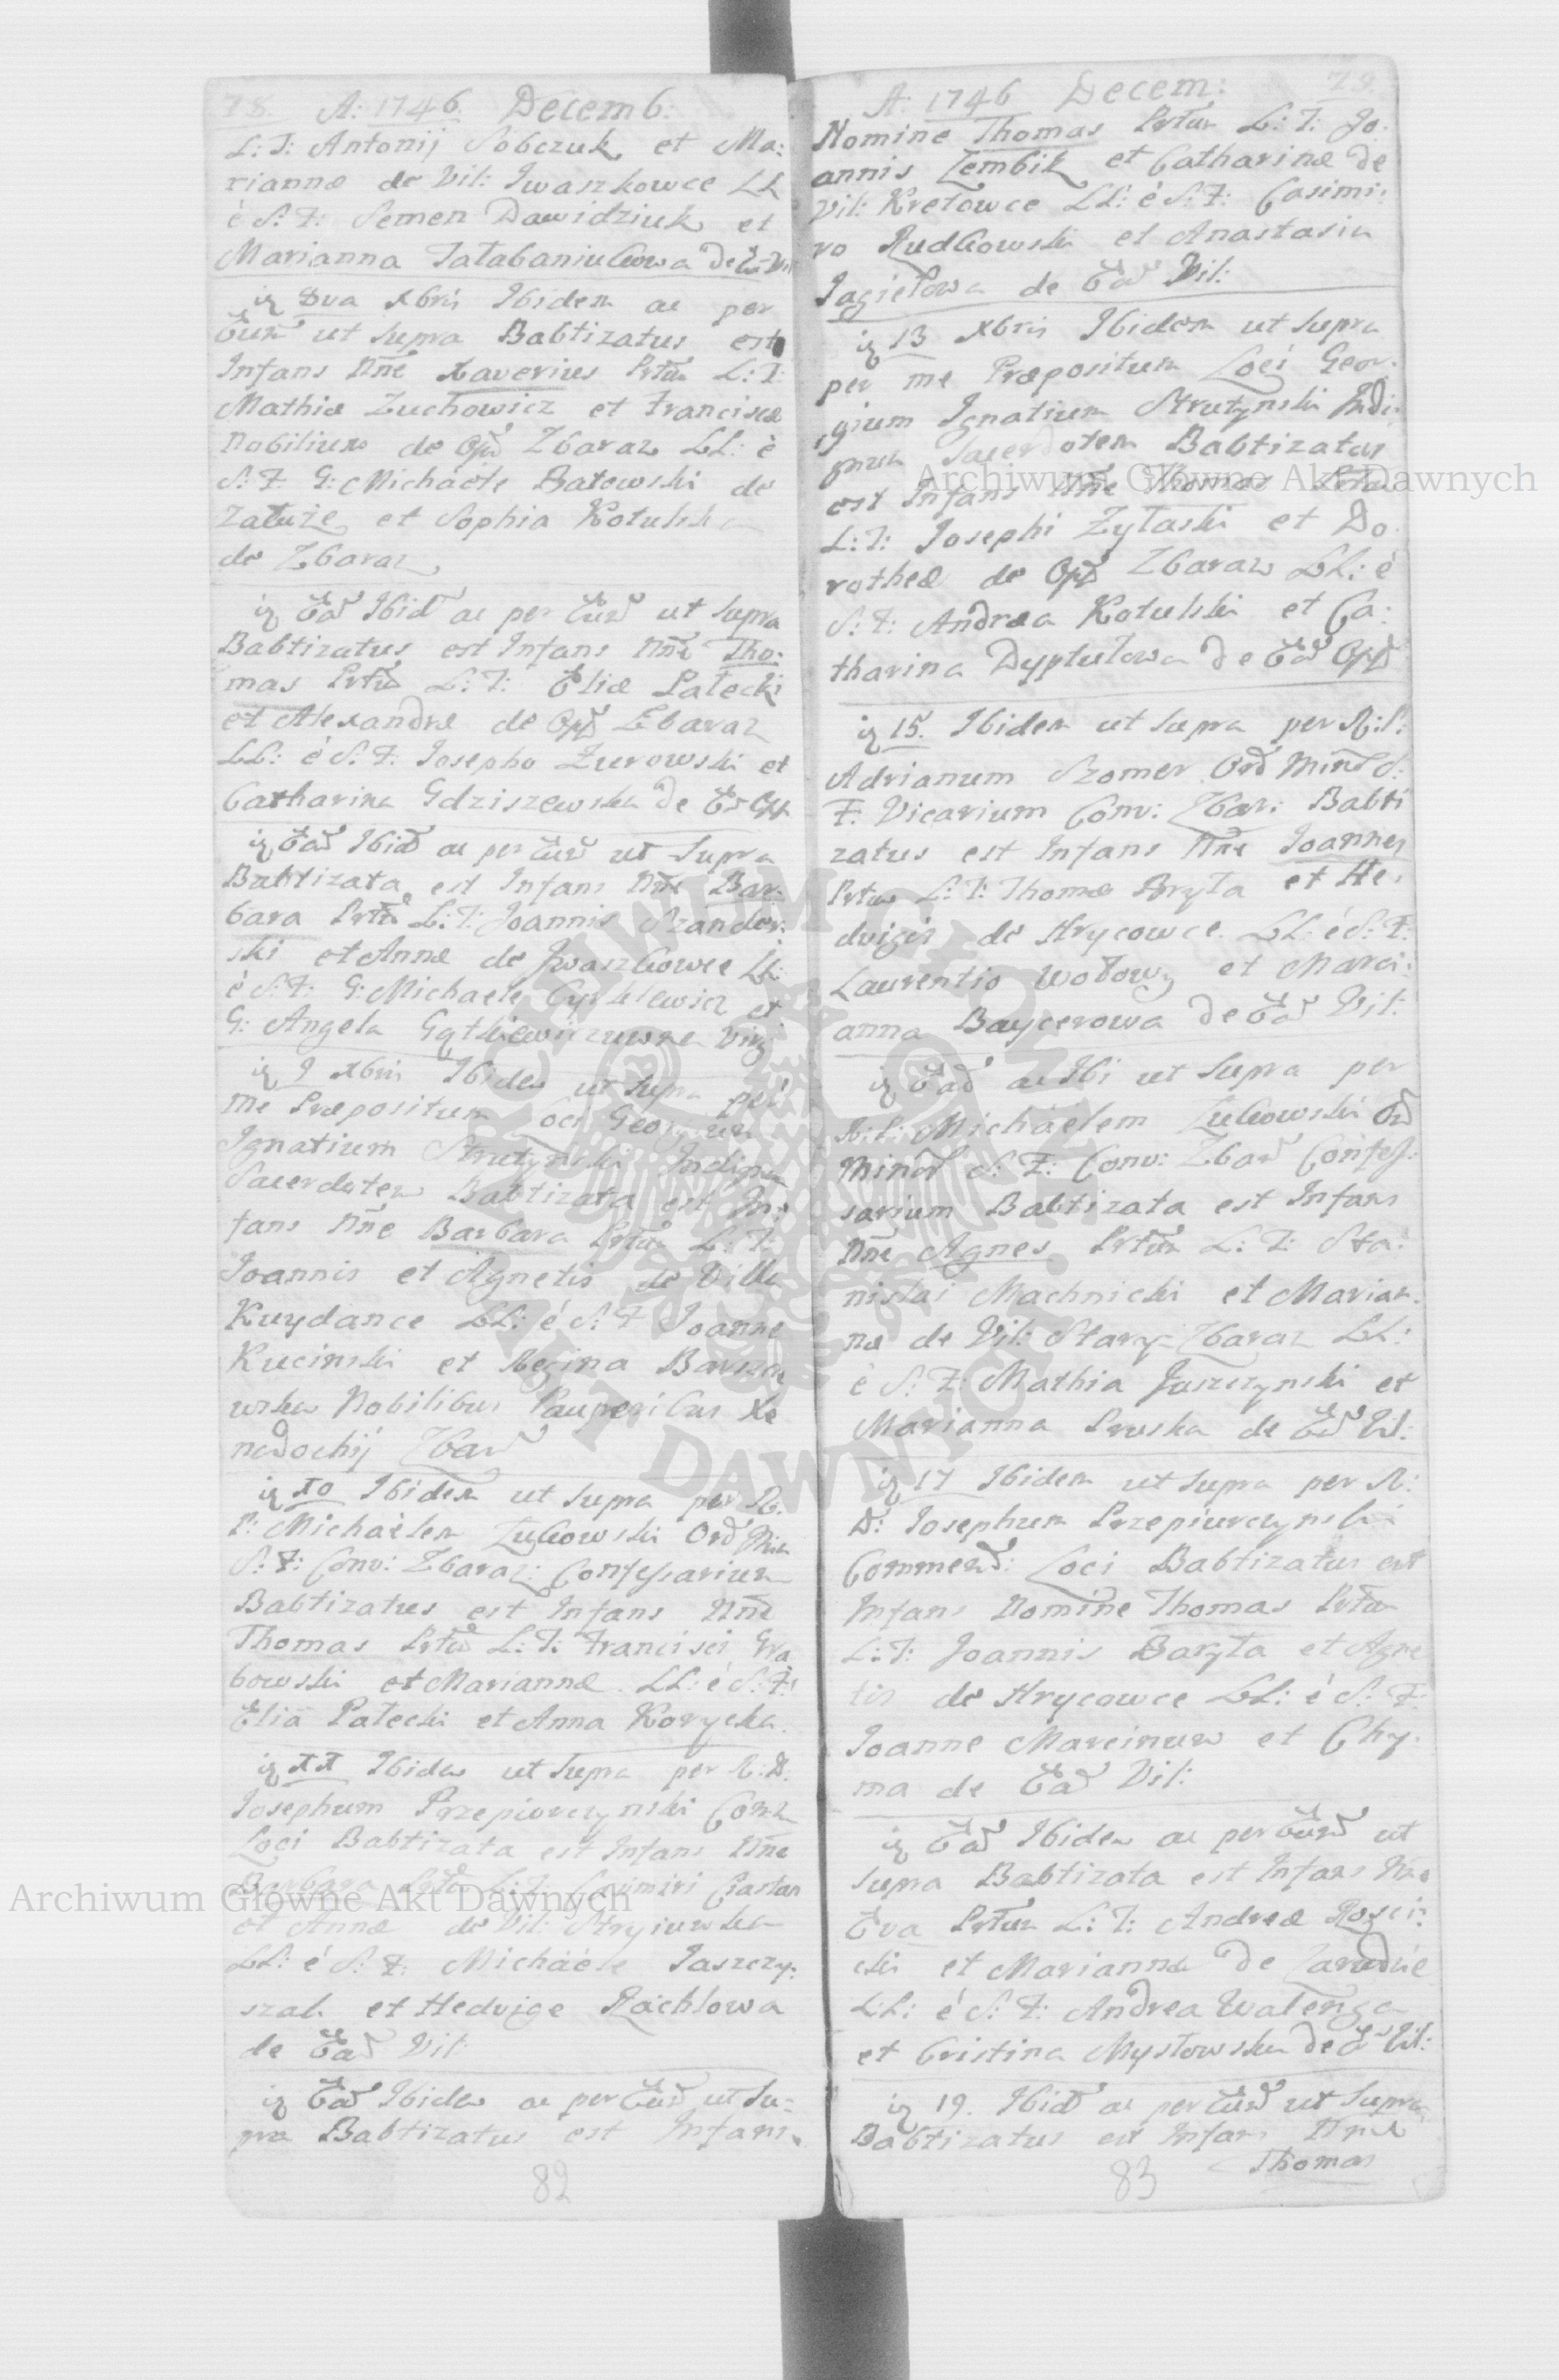 78. A: 1746 Decemb:
L: T: Antonij Sobczuk et Ma:
riannæ de Vil: Iwaszkowce LL
è S: F: Semen Dawidziuk et
Marianna
Dva Xbris Ibidem ac per
Eun͠d ut supra Babtizatus est
Infans Nñe Xaverius Prtũm L: T:
Mathiæ Zuchowicz et Franciscæ
Nobilium de Opp͠d Zbaraz LL: è
S: F: G: Michaele Batowski de
Załuże et Sophia Kotulska
de Zbaraz
Ea͠d Ibid͠ ac per Eun͠d ut supra
Babtizatus est Infans Nñe Tho:
mas Prtũm L: T: Eliæ Pałecki
et Alexandræ de Opp͠d Zbaraz
LL: è S: F: Josepho Zurowski et
Catharina Gdziszewska de
Ea͠d Ibid͠ ac per Eun͠d ut supra
Babtizata est Infans Nñe Bar:
bara Prtũm L: T: Joannis
ski et Annæ de Iwaszkowce LL:
è S: F: G: Michaele et
G: Angela Virg
9 Xbris Ibidem ut supra per
me Præpositum Loci Georgium
Ignatium Strutynski Indignum
Sacerdotem Babtizata est In:
fans Nñe Barbara Prtũm L: T:
Joannis et Agnetis de Villa
Kuydance LL: è S: F: Joanne
Kucinski et Regina
Nobilibus Pauperibus Xe
nodochij Zbar͠
10 Ibidem ut supra per R:
P: Michäelem Żukowski Ord͠ Min
S: F: Conv: Zbaraz: Confessarium
Babtizatus est Infans Nñe
Thomas Prtũm L: T: Francisci Gra
bowski et Mariannæ LL: è S: F:
Elia Pałecki et Anna Korycka.
11 Ibidem ut supra per R: D:
Josephum Przepiurczynski Com
Loci Babtizata est Infans Nñe
Barbara Prtũm L: T: Casimiri
et Annæ de Vil: Stryiuwka
LL: è S: F: Michäele Jaszczy:
szak et Hedvige Rachlowa
de Ea͠d Vil:
Ea͠d Ibidem ac per Eun͠d ut su:
pra Babtizatus est Infans
82
79.
A: 1746 Decem:
Nomine Thomas Prtũm L: T: Jo:
annis Zembik et Catharinæ de
Vil: Kretowce LL: è S: F: Casimi:
ro Rudkowski et Anastasia
Jagiełowa de Ea͠d Vil:
13 Xbris Ibidem ut supra
per me Præpositum Loci Geor:
gium Ignatium Strutynski Indi:
gnum Sacerdotem Babtizatus
est Infans Nñe Thomas Prtũm
L: T: Josephi Zytaski et Do:
rotheæ de Opp͠d Zbaraz LL: è
S: F: Andrea Kotulski et Ca:
tharina Dyptułowa de Ea͠d Opp͠d
15. Ibidem ut supra per R: P:
Adrianum Szomer Ord͠ Min͠ S:
F: Vicarium Conv: Zbar: Babti
zatus est Infans Nñe Joannes
Prtũm L: T: Thomæ Bryła et He:
dvigis de Hrycowce LL: è S: F:
Laurentio Wołowy et Mari:
anna Baycerowa de Ea͠d Vil:
Ea͠d ac Ibi ut supra per
R: P: Michäelem Żukowski Ord͠
Min͠ S: F: Conv: Zbar͠ Confes:
sarium Babtizata est Infans
Nñe Agnes Prtũm L: T: Sta:
nislai Machnicki et Marian:
næ de Vil: Stary Zbaraz LL:
è S: F: Mathia Juszczynski et
Marianna Pruska de Ea͠d Vil:
17 Ibidem ut supra per R:
D: Josephum Przepiurczynski
Commend: Loci Babtizatus est
Infans Nomine Thomas Prtũm
L: T: Joannis Baryła et Agne
tis de Hrycowce LL: è S: F:
Joanne Marcinuw et Chy:
ma de Ea͠d Vil:
Ea͠d Ibidem ac per Eun͠d ut
supra Babtizata est Infans Nñe
Eva Prtũm L: T: Andreæ Rogci:
cki et Mariannæ de Zarudie
LL: è S: F: Andrea Walenga
et Cristina Mysłowska de Ea͠ Vil:
19. Ibid͠ ac per Eun͠d ut supra
Babtizatus est Infans Nñe
Thomas
83
Archiwum Główne Akt Dawnych
Archiwum Główne Akt Dawnych
ARCHIWUM GŁÓWNE AKT DAWNYCH